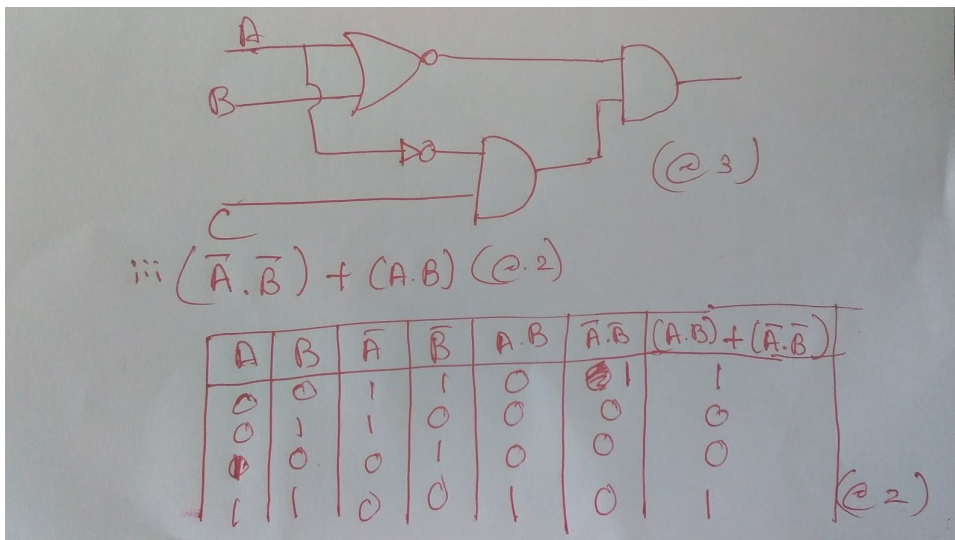 A
B
C
(@ 3)
iii (A̅.B̅) + (A.B) (@.2)
A B A̅ B̅ A.B A̅.B̅ (A.B) + (A̅.B̅)
0 0 1 1 0 1 1
0 1 1 0 0 0 0
1 0 0 1 0 0 0
1 1 0 0 1 0 1
(@ 2)